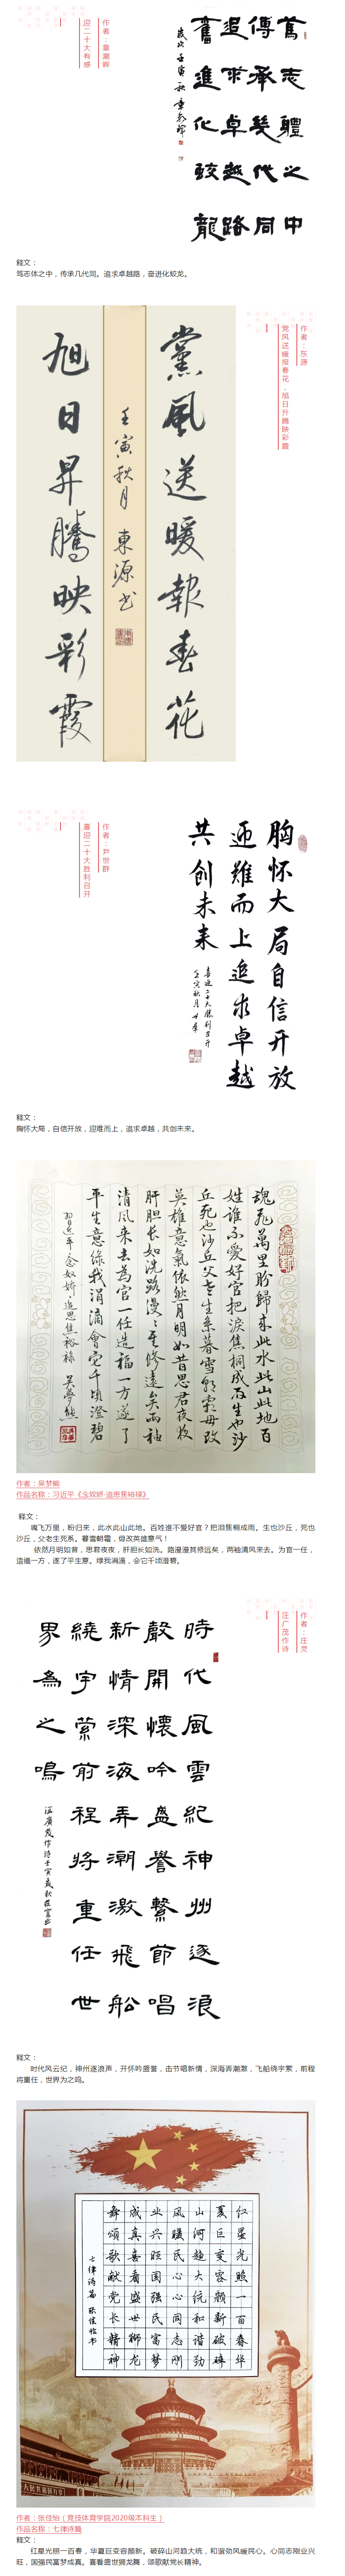 作者：章潮晖
迎二十大有感
笃志体之中
传承几代同
追求卓越路
奋进化蛟龙
岁次壬寅秋
释文：
笃志体之中，传承几代同。追求卓越路，奋进化蛟龙。
作者：东源
党风送暖报春花，旭日升腾映彩霞
黨風送暖報春花
壬寅秋月東源书
旭日昇騰映彩霞
作者：尹世群
喜迎二十大胜利召开
胸怀大局自信开放
迎難而上追求卓越
共创未来
喜迎二十大胜利召开
壬寅秋月世羣
释文：
胸怀大局，自信开放，迎难而上，追求卓越，共创未来。
魂飛萬里盼歸来此水此山此地百
姓谁不愛好官把淚焦桐成雨生也沙
丘死也沙丘父老生死系暮雪朝霜毋改
英雄意氣依然月明如昔思君夜夜
肝胆长如洗路漫漫其修遠矣两袖
清风来去为官一任造福一方遂了
平生意绿我涓滴會它千頃澄碧
習近平念奴娇追思焦裕禄 吴夢熊
作者：吴梦熊
作品名称：习近平《念奴娇·追思焦裕禄》
释文：
魂飞万里，盼归来，此水此山此地。百姓谁不爱好官？把泪焦桐成雨。生也沙丘，死也
沙丘，父老生死系。暮雪朝霜，毋改英雄意气！
依然月明如昔，思君夜夜，肝胆长如洗。路漫漫其修远矣，两袖清风来去。为官一任，
造福一方，遂了平生意。绿我涓滴，会它千顷澄碧。
作者：庄灵
汪广茂作诗
時代風雲紀神州逐浪
聲開懷吟盛譽擊節唱
新情深海弄潮激飛船
繞宇縈前程將重任世
界為之鳴
汪廣茂作詩壬寅歲秋莊靈書
释文：
时代风云纪，神州逐浪声，开怀吟盛誉，击节唱新情，深海弄潮激，飞船绕宇萦，前程
将重任，世界为之鸣。
红星光照一百春华
夏巨变容颜新破碎
山河趋大统和谐劲
风暖民心心同志刚
业兴旺国强民富梦
成真喜看盛世狮龙
舞颂歌献党长精神
七律诗篇 张佳怡书
作者：张佳怡（竞技体育学院2020级本科生）
作品名称：七律诗篇
释文：
红星光照一百春，华夏巨变容颜新。破碎山河趋大统，和谐劲风暖民心。心同志刚业兴
旺，国强民富梦成真。喜看盛世狮龙舞，颂歌献党长精神。